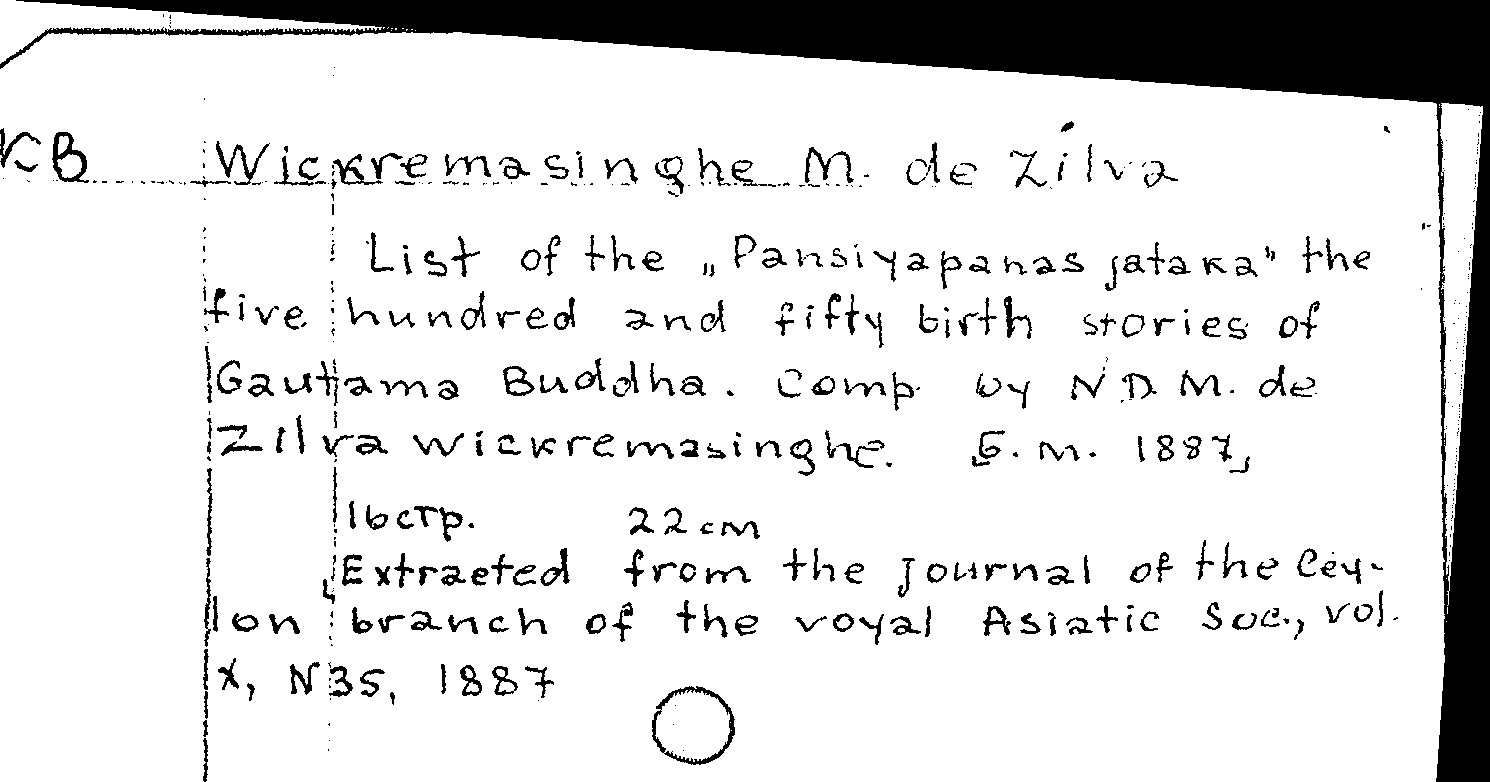 КВ Wickremasinghe M. de Zilva
List of the „Pansiyapanas jataka" the
five hundred and fifty birth stories of
Gautama Buddha. Comp. by N D. M. de
Zilva Wickremasinghe. Б. м. 1887,
16 стр. 22 см
Extracted from the Journal of the Cey-
lon branch of the royal Asiatic Soc., vol.
X, N 35, 1887